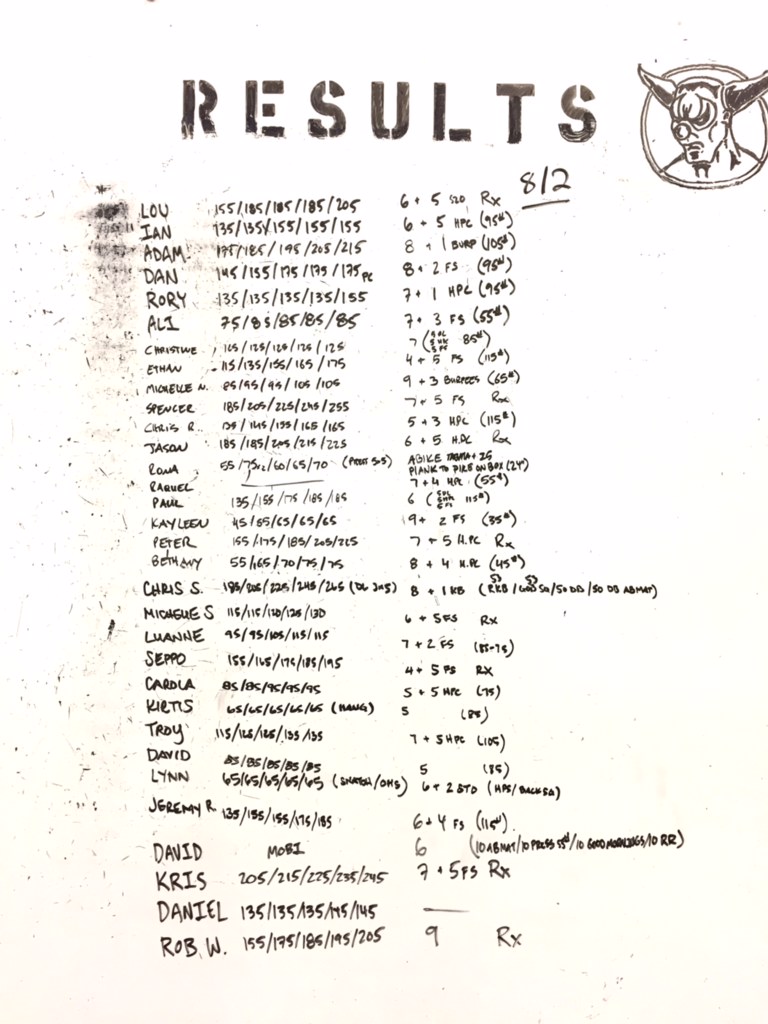 RESULTS
8/2
LOU 155/185/185/185/205 6 + 5 S2O Rx
IAN 135/135/155/155/155 6 + 5 HPC (95#)
ADAM 175/185/195/205/215 8 + 1 BURP (105#)
DAN 145/155/175/175/175 PC 8 + 2 FS (95#)
RORY 135/135/135/135/155 7 + 1 HPC (95#)
ALI 75/85/85/85/85 7 + 3 FS (55#)
CHRISTINE 105/125/125/125/125 7 85#)
ETHAN 115/135/155/165/175 4 + 5 FS (115#)
MICHELLE N. 85/95/95/105/105 9 + 3 BURPEES (65#)
SPENCER 185/205/225/245/255 7 + 5 FS Rx
CHRIS R. 135/145/155/165/165 5 + 3 HPC (115#)
JASON 185/185/205/215/225 6 + 5 H.PC Rx
RONA 55/75x2/60/65/70 ABIKE TABATA + 25
PLANK TO PIKE ON BOX (24")
RAQUEL 7 + 4 HPC (55#)
PAUL 135/155/175/185/185 6 115#)
KAYLEEN 45/55/65/65/65 9 + 2 FS (35#)
PETER 155/175/185/205/215 7 + 5 H.PC Rx
BETHANY 55/65/70/75/75 8 + 4 H.PC (45#)
CHRIS S. 185/205/225/245/265 (DL 3x5) 8 + 1 KB /50 DB /50 DB ABMAT)
MICHELLE S 115/115/120/125/130 6 + 5 FS Rx
LUANNE 95/95/105/115/115 7 + 2 FS (85-75)
SEPPO 155/165/175/185/195 4 + 5 FS Rx
CAROLA 85/85/95/95/95 5 + 5 HPC (75)
KIRTIS 65/65/65/65/65 (HANG) 5 (85)
TROY 115/125/125/135/135 7 + 5 HPC (105)
DAVID 85/85/85/85/85 5 (85)
LYNN 65/65/65/65/65 (SNATCH/OHS) 6 + 2 STO (HPS/BACKSQ)
JEREMY R. 135/155/155/175/185 6 + 4 FS (115#)
DAVID MOBI 6 (10 ABMAT/10 PRESS 55#/10 GOOD MORNINGS/10 RR)
KRIS 205/215/225/235/245 7 + 5 FS Rx
DANIEL 135/135/135/145/145 —
ROB W. 155/175/185/195/205 9 Rx